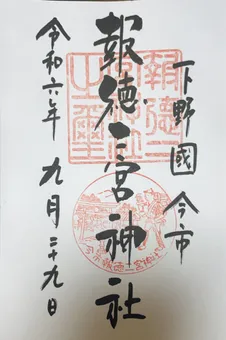 下野國 今市
報徳二宮神社
令和六年 九月二十九日
報徳二宮神社之璽